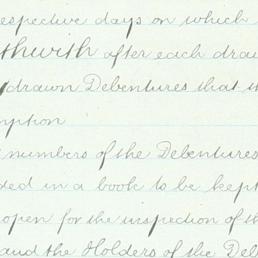 respective days on which
thwith after each draw
drawn Debentures that th
mption
numbers of the Debentures
ded in a book to be kept
open for the inspection of th
and the Holders of the Deb